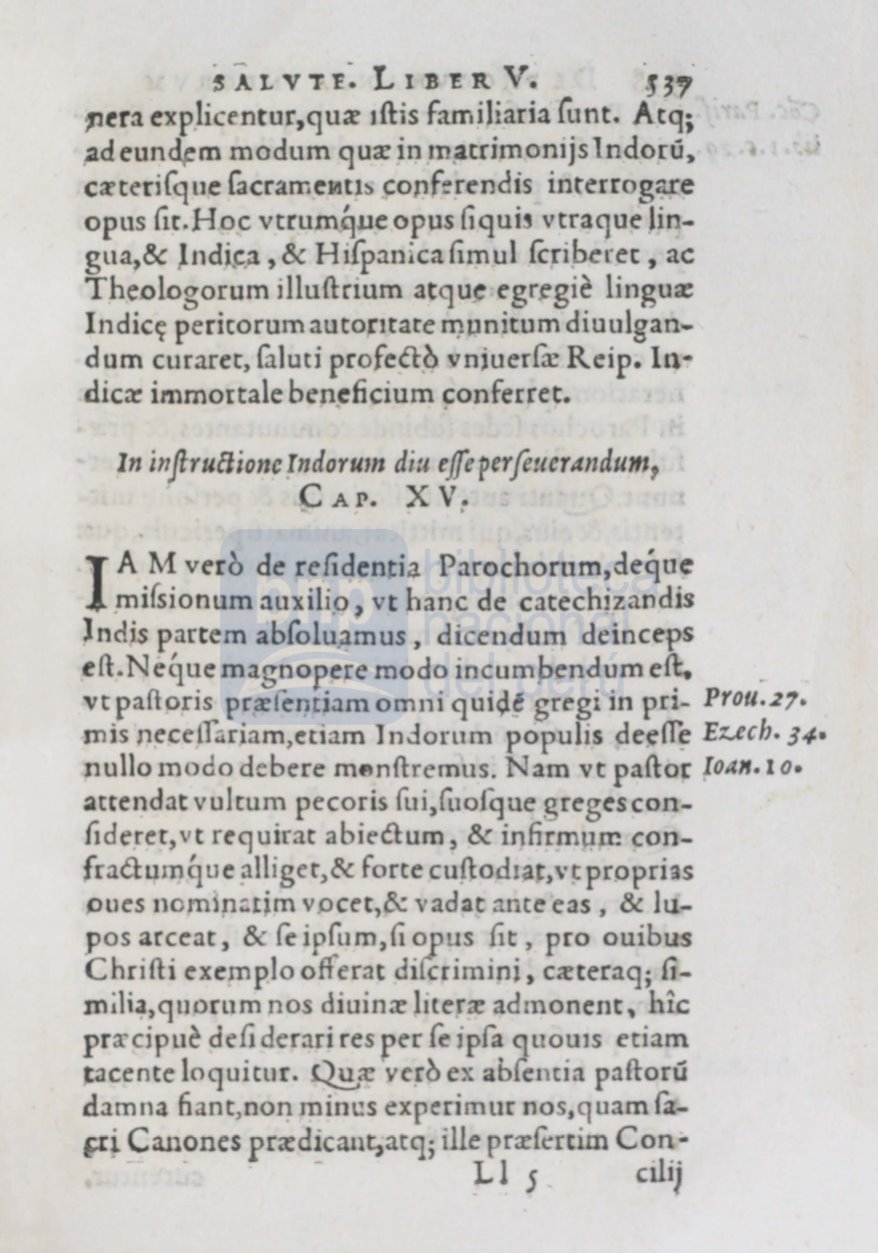 SALVTE. LIBER V. 537
nera explicentur,quæ istis familiaria sunt. Atq;
ad eundem modum quæ in matrimonijs Indorũ,
cæterisque sacramentis conferendis interrogare
opus sit.Hoc vtrumq́ue opus si quis vtraque lin-
gua,& Indica , & Hispanica simul scriberet , ac
Theologorum illustrium atque egregiè linguæ
Indicę peritorum autoritate munitum diuulgan-
dum curaret, saluti profectò vniuersæ Reip. In-
dicæ immortale beneficium conferret.
In instructione Indorum diu esse perseuerandum,
CAP. XV.
IAM verò de residentia Parochorum,deq́ue
missionum auxilio, vt hanc de catechizandis
Indis partem absoluamus , dicendum deinceps
est.Neq́ue magnopere modo incumbendum est,
vt pastoris præsentiam omni quidẽ gregi in pri- Prou.27.
mis necessariam,etiam Indorum populis deesse Ezech. 34.
nullo modo debere monstremus. Nam vt pastor Ioan.10.
attendat vultum pecoris sui,suosque greges con-
sideret,vt requirat abiectum, & infirmum con-
fractumq́ue alliget,& forte custodiat,vt proprias
oues nominatim vocet,& vadat ante eas , & lu-
pos arceat, & se ipsum,si opus sit , pro ouibus
Christi exemplo offerat discrimini, cæteraq; si-
milia,quorum nos diuinæ literæ admonent, hîc
præcipuè desiderari res per se ipsa quouis etiam
tacente loquitur. Quæ verò ex absentia pastorũ
damna fiant,non minus experimur nos,quam sa-
cri Canones prædicant,atq; ille præsertim Con-
Ll 5 cilij
bnp biblioteca
nacional
del perú